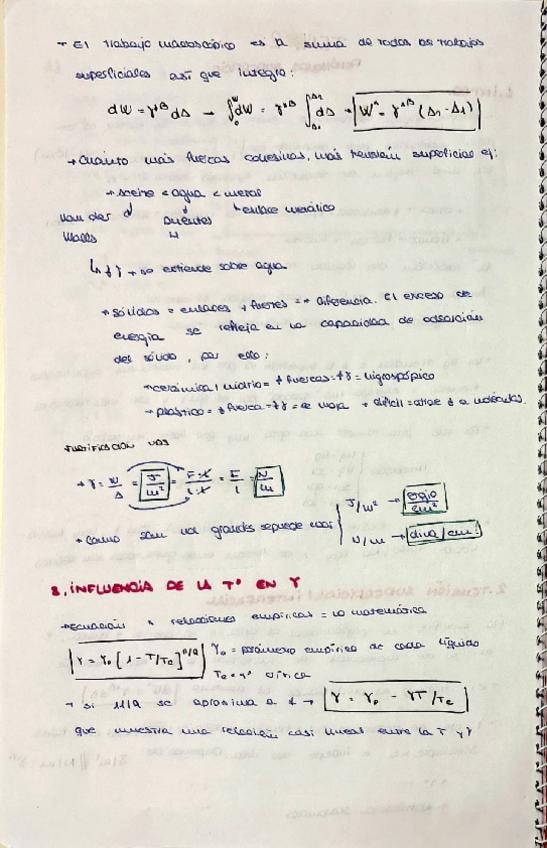 → El trabajo macroscópico es la suma de todos los trabajos
superficiales así que integro:
dW = γ^αβ dA → ∫₀^W dW = γ^αβ ∫ dA → W = γ^αβ (A₁ - A₁)
→ Cuánto más fuerzas cohesivas, más tensión superficial ej:
→ aceite < agua < metal
Van der puentes ↳ enlace metálico
Walls H
γ → se extiende sobre agua
→ sólidos = enlaces + fuertes = diferencia. El exceso de
energía se refleja en la capacidad de adsorción
del sólido, por ello:
→ cerámica / vidrio = + fuerzas = + γ = higroscópico
→ plástico = fuerza = γ = se moja + difícil = atrae moléculas.
→ γ = W/A = J/m² = F·l/l·l = F/l = N/m
→ como son grandes se puede usar J/m² → ergio/cm²
N/m → dina/cm
3. INFLUENCIA DE LA Tª EN γ
→ Ecuación relaciones empíricas = matemática
γ = γ₀ [1 - T/Tc]^11/9 γ₀ = parámetro empírico de cada líquido
Tc = Tª crítica
→ si 11/9 se aproxima a 1 → γ = γ₀ - γT/Tc
que muestra una relación casi lineal entre la T y γ